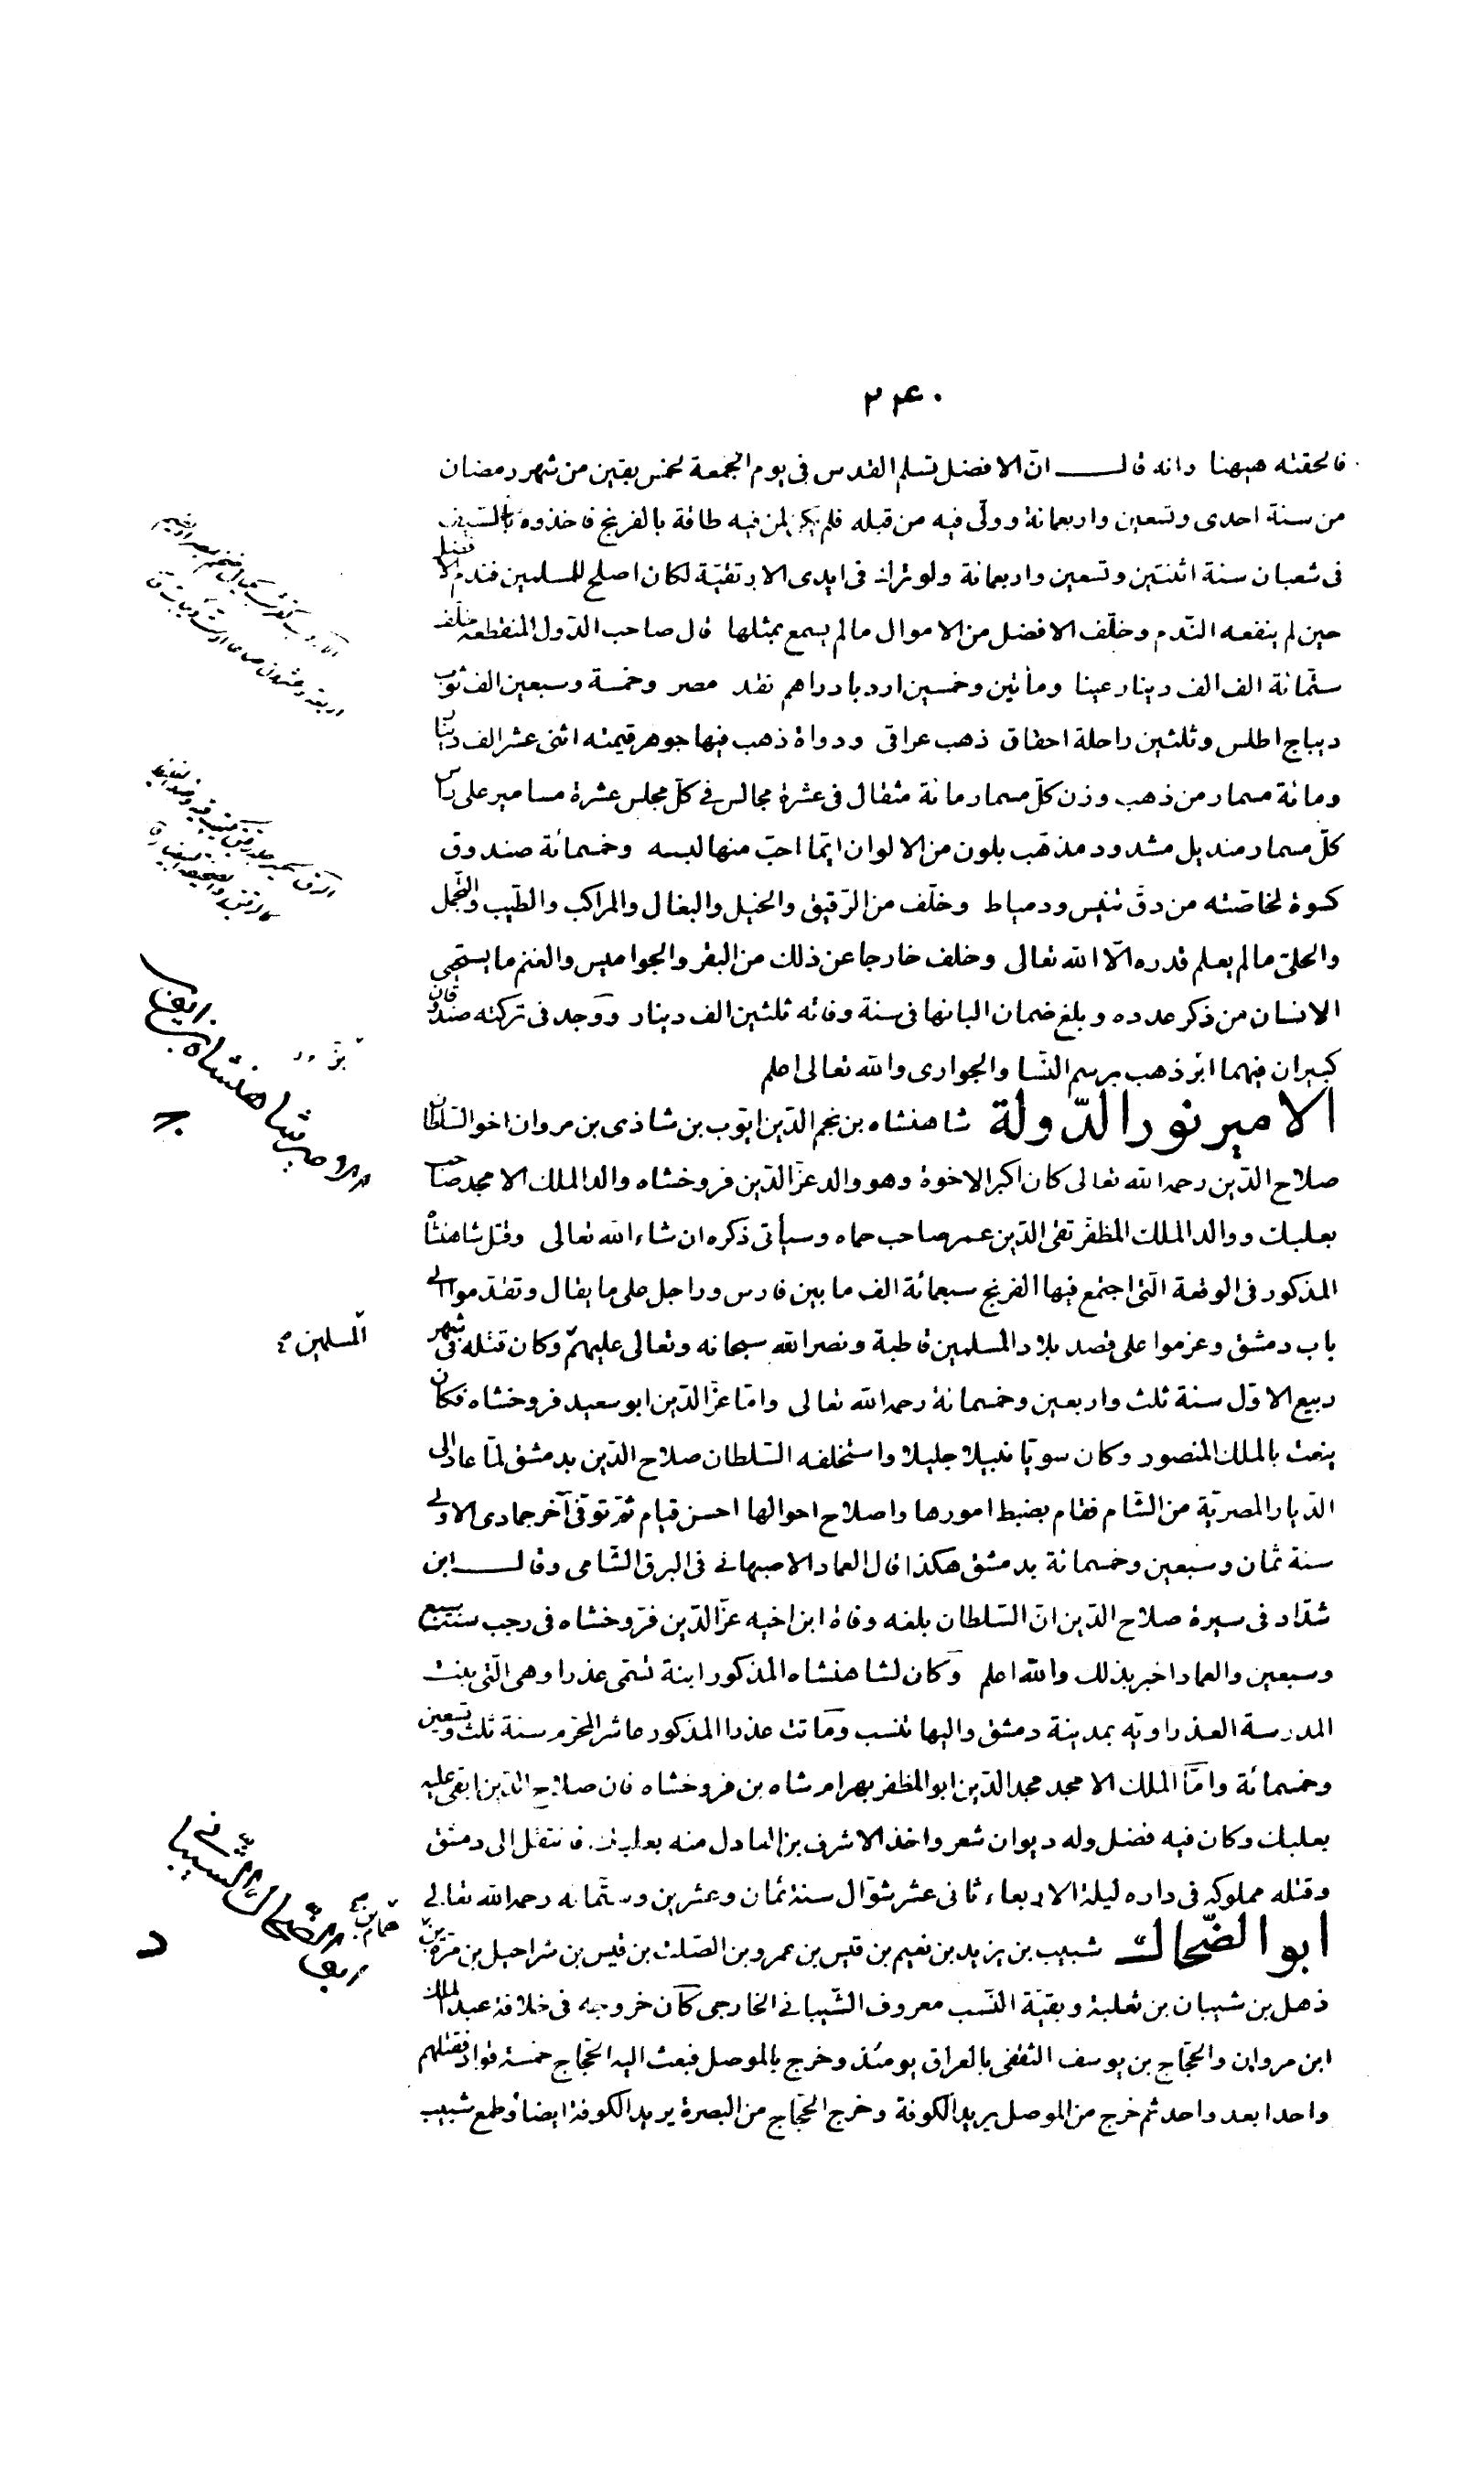 ٢٤٠
فالحقته هيهنا وانه قال انّ الافضل تسلم القدس فى يوم الجمعة لخمس بقين من شهر رمضان
من سنة احدى وتسعين واربعمائة وولّى فيه من قبله فلم يكن لمن فيه طاقة بالفرنج فاخذوه بالسّيف
فى شعبان سنة اثنتين وتسعين واربعمائة ولو ترك فى ايدى الارتقيّة لكان اصلح للمسلمين فندم الافضل
حين لم ينفعه النّدم وخلّف الافضل من الاموال ما لم يسمع بمثلها قال صاحب الدّول المنقطعه خلّف
ستّمائة الف الف دينار عينا ومأتين وخمسين اردبا دراهم نقد مصر وخمسة وسبعين الف ثوب
ديباج اطلس وثلثين راحلة احقاق ذهب عراقى ودواة ذهب فيها جوهر قيمته اثنى عشر الف دينار
ومائة مسمار من ذهب وزن كلّ مسمار مائة مثقال فى عشرة مجالس فى كلّ مجلس عشرة مسامير على رأس
كلّ مسمار منديل مشدود مذهّب بلون من الالوان ايّما احبّ منها لبسه وخمسمائة صندوق
كسوة لخاصّته من دقّ تنيس ودمياط وخلّف من الرّقيق والخيل والبغال والمراكب والطّيب والتّجمل
والحلىّ ما لم يعلم قدره الّا الله تعالى وخلف خارجا عن ذلك من البقر والجواميس والغنم ما يستحى
الانسان من ذكر عدده وبلغ ضمان البانها فى سنة وفاته ثلثين الف دينار ووجد فى تركته صندوقان
كبيران فيهما ابر ذهب برسم النّسا والجوارى والله تعالى اعلم
الامير نور الدّولة شاهنشاه بن نجم الدّين ايّوب بن شاذى بن مروان اخو السّلطان
صلاح الدّين رحمه الله تعالى كان اكبر الاخوة وهو والد عزّ الدّين فروخشاه والد الملك الامجد صاحب
بعلبك ووالد الملك المظفّر تقى الدّين عمر صاحب حماه وسيأتى ذكره ان شاء الله تعالى وقتل شاهنشاه
المذكور فى الوقعة الّتى اجتمع فيها الفرنج سبعمائة الف ما بين فارس وراجل على ما يقال وتقدّموا الى
باب دمشق وعزموا على قصد بلاد المسلمين قاطبة ونصر الله سبحانه وتعالى عليهم وكان قتله فى شهر
المسلمين
ربيع الاوّل سنة ثلث واربعين وخمسمائة رحمه الله تعالى وامّا عزّ الدّين ابو سعيد فروخشاه فكان
ينعت بالملك المنصور وكان سريّا نبيلا جليلا واستخلفه السّلطان صلاح الدّين بدمشق لمّا عاد الى
الدّيار المصريّة من الشّام فقام بضبط امورها واصلاح احوالها احسن قيام ثمّ توفّى آخر جمادى الاولى
سنة ثمان وسبعين وخمسمائة بدمشق هكذا قال العماد الاصبهانى فى البرق الشّامى وقال ابن
شدّاد فى سيرة صلاح الدّين انّ السّلطان بلغه وفاة ابن اخيه عزّ الدّين فرّوخشاه فى رجب سنة سبع
وسبعين والعماد اخبر بذلك والله اعلم وكان لشاهنشاه المذكور ابنة تسمّى عذرا وهى الّتى بنت
المدرسة العذراويّه بمدينة دمشق واليها تنسب وماتت عذرا المذكور عاشر المحرّم سنة ثلث وتسعين
وخمسمائة وامّا الملك الامجد مجد الدّين ابو المظفر بهرام شاه بن فروخشاه فان صلاح الدّين ابقى عليه
بعلبك وكان فيه فضل وله ديوان شعر واخذ الاشرف بن العادل منه بعلبك فانتقل الى دمشق
وقتله مملوكه فى داره ليلة الاربعاء ثانى عشر شوّال سنة ثمان وعشرين وستّمائه رحمه الله تعالى
ابو الضّحاك شبيب بن يزيد بن نعيم بن قيس بن عمرو بن الصّلت بن قيس بن شراحيل بن مرّة بن
ابو الضّحاك الشّيبانى
ذهل بن شيبان بن ثعلبة وبقيّة النّسب معروف الشّيبانى الخارجى كان خروجه فى خلافة عبد الملك
ابن مروان والحجّاج بن يوسف الثقفى بالعراق يومئذ وخرج بالموصل فبعث اليه الحجّاج خمسة قوّاد فقتلهم
واحدا بعد واحد ثم خرج من الموصل يريد الكوفة وخرج الحجّاج من البصرة يريد الكوفة ايضا وطمع شبيب